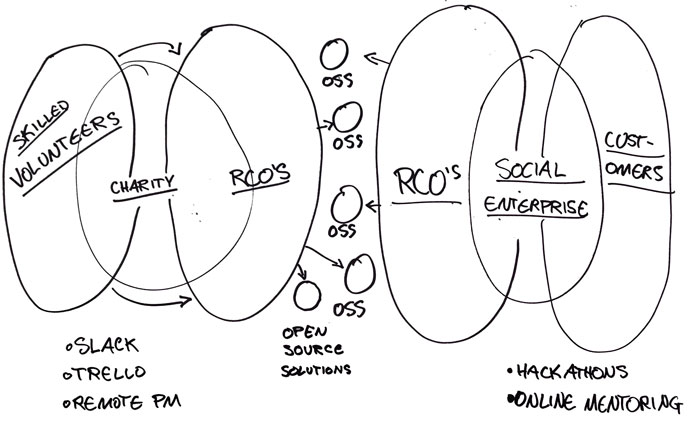 SKILLED
VOLUNTEERS
CHARITY
RCO'S
OSS
OSS
OSS
OSS
OPEN
SOURCE
SOLUTIONS
RCO'S
SOCIAL
ENTERPRISE
CUST-
OMERS
•SLACK
•TRELLO
•REMOTE PM
•HACKATHONS
•ONLINE MENTORING